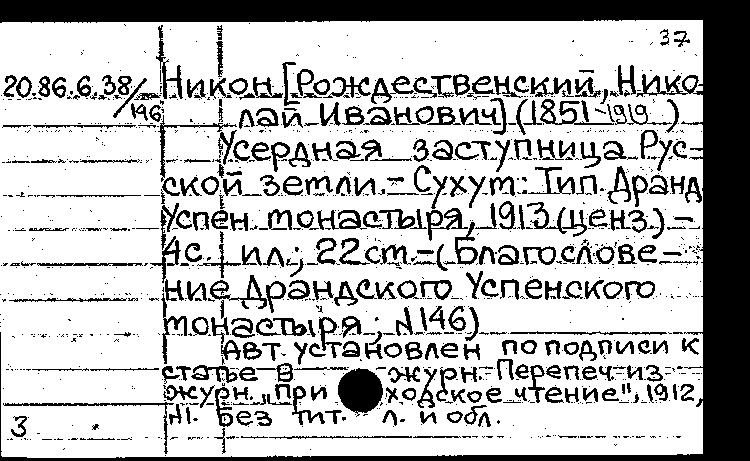 37
20.86.6.38/146 Никон [Рождественский, Нико-
лай Иванович] (1851-1919)
Усердная заступница Рус-
ской земли. - Сухум: Тип. Дранд.
Успен. монастыря, 1913 (ценз.) -
4с. ил.; 22 см. - (Благослове-
ние Драндского Успенского
монастыря; N 146)
Авт. установлен по подписи к
статье в журн. Перепеч. из
журн. "Приходское чтение", 1912,
N1. Без тит. л. и обл.
3